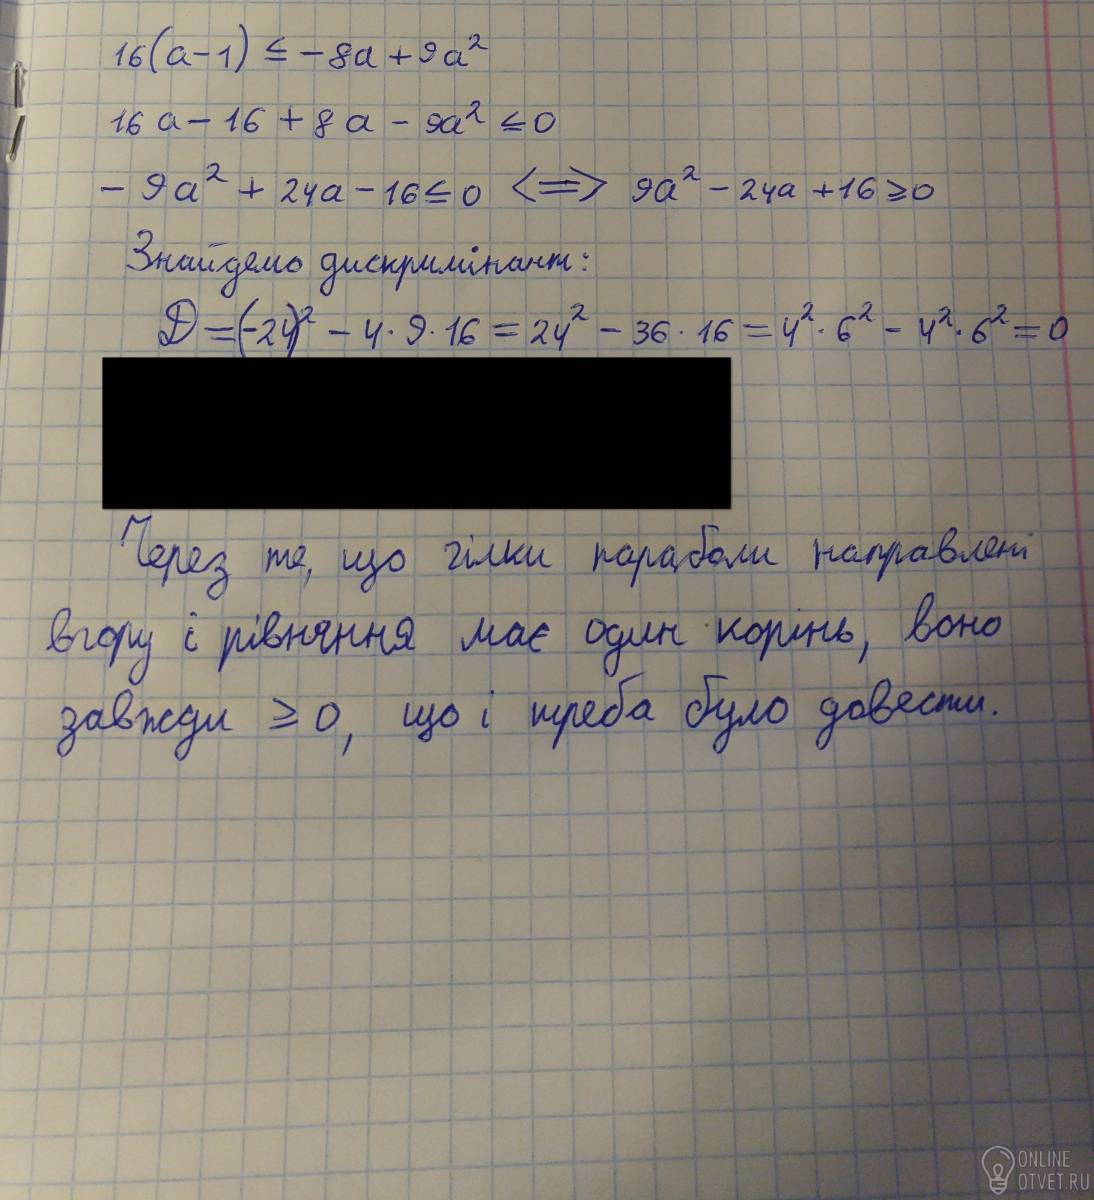 16(a-1) ≤ -8a + 9a²
16a - 16 + 8a - 9a² ≤ 0
- 9a² + 24a - 16 ≤ 0 <=> 9a² - 24a + 16 ≥ 0
Знайдемо дискримінант:
D = (-24)² - 4·9·16 = 24² - 36·16 = 4²·6² - 4²·6² = 0
Через те, що гілки параболи направлені
вгору і рівняння має один корінь, воно
завжди ≥ 0, що і треба було довести.
ONLINE
OTVET.RU